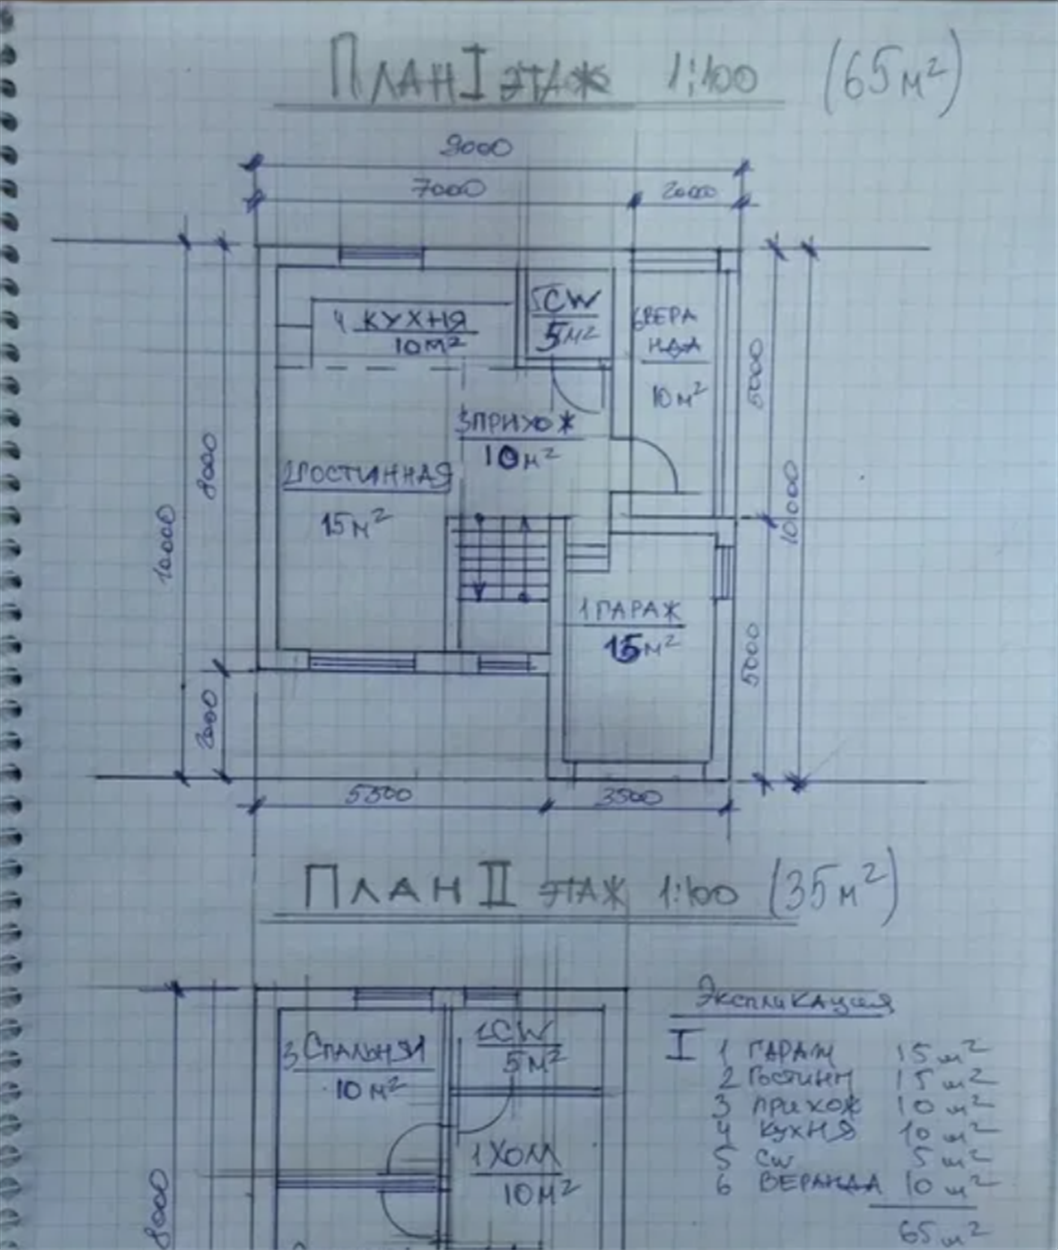 ПЛАН I ЭТАЖ 1:100 (65 м²)
9000
7000 2000
4 КУХНЯ
10 м²
5 CW
5 м²
6 ВЕРА
НДА
10 м²
3 ПРИХОЖ
10 м²
2 ГОСТИННАЯ
15 м²
1 ГАРАЖ
15 м²
10000
8000
2000
5000
10000
5000
5500 3500
ПЛАН II ЭТАЖ 1:100 (35 м²)
3 СПАЛЬНЯ
10 м²
2 CW
5 м²
1 ХОЛЛ
10 м²
8000
Экспликация
I 1 ГАРАЖ 15 м²
2 Гостинн 15 м²
3 прихож 10 м²
4 кухня 10 м²
5 CW 5 м²
6 ВЕРАНДА 10 м²
65 м²